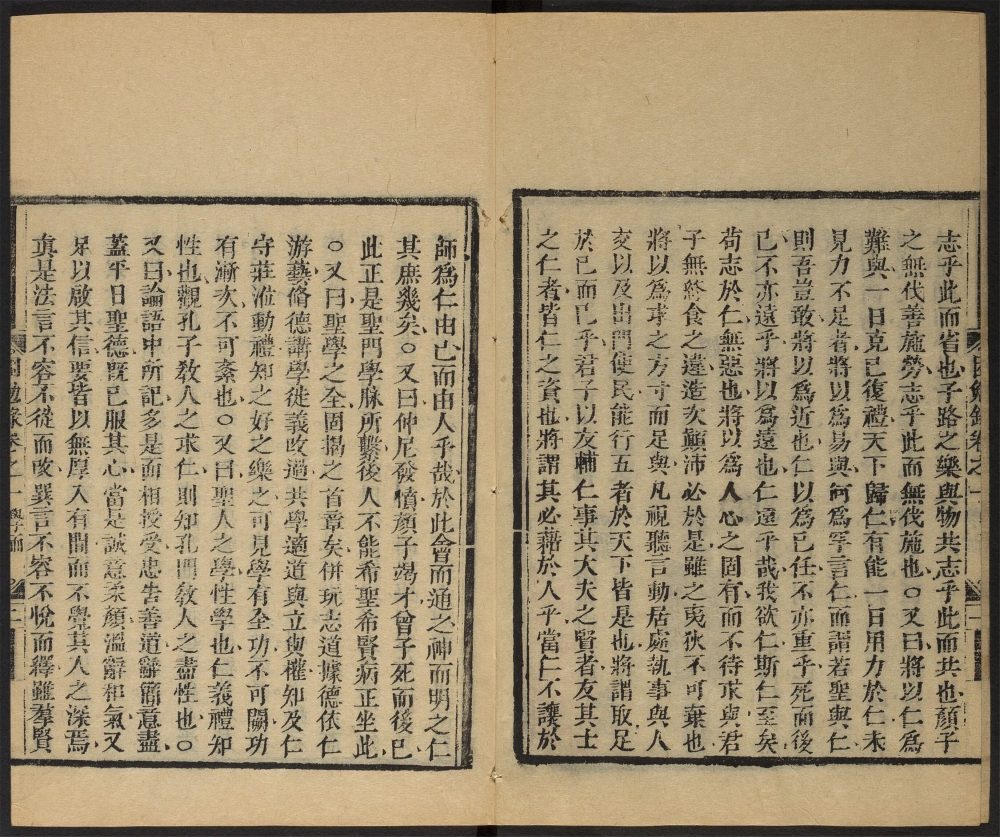 志乎此而省也子路之樂與物共志乎此而共也顏子
之無伐善施勞志乎此而無伐施也〇又曰將以仁爲
難與一日克已復禮天下歸仁有能一日用力於仁未
見力不足者將以爲易與何爲罕言仁而謂若聖與仁
則吾豈敢將以爲近也仁以爲已任不亦重乎死而後
已不亦遠乎將以爲遠也仁遠乎哉我欲仁斯仁至矣
苟志於仁無惡也將以爲人心之固有而不待求與君
子無終食之違造次顚沛必於是雖之夷狄不可棄也
將以爲求之方寸而足與凡視聽言動居處執事與人
交以及出門使民能行五者於天下皆是也將謂取足
於已而已乎君子以友輔仁事其大夫之賢者友其士
之仁者皆仁之資也將謂其必藉於人乎當仁不讓於
師爲仁由已而由人乎哉於此會而通之神而明之仁
其庶幾矣〇又曰仲尼發憤顏子竭才曾子死而後已
此正是聖門學脉所繫後人不能希聖希賢病正坐此
〇又曰聖學之全固揭之首章矣併玩志道據德依仁
游藝脩德講學徙義改過共學適道與立與權知及仁
守莊涖動禮知之好之樂之可見學有全功不可闕功
有漸次不可紊也〇又曰聖人之學性學也仁義禮知
性也觀孔子教人之求仁則知孔門教人之盡性也〇
又曰論語中所記多是面相授受忠告善道辭簡意盡
蓋平日聖德旣已服其心當是誠意柔顏溫辭和氣又
足以啟其信要皆以無厚入有間而不覺其入之深焉
眞是法言不容不從而改巽言不容不悅而繹雖羣賢